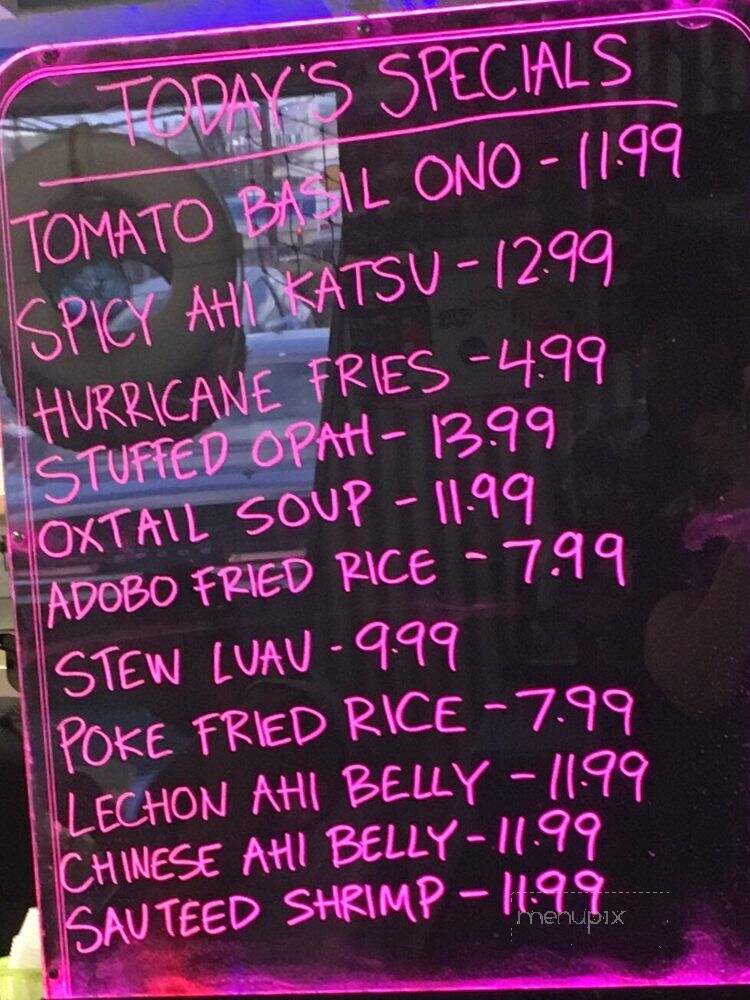 TODAY'S SPECIALS
TOMATO BASIL ONO - 11.99
SPICY AHI KATSU - 12.99
HURRICANE FRIES - 4.99
STUFFED OPAH - 13.99
OXTAIL SOUP - 11.99
ADOBO FRIED RICE - 7.99
STEW LUAU - 9.99
POKE FRIED RICE - 7.99
LECHON AHI BELLY - 11.99
CHINESE AHI BELLY - 11.99
SAUTEED SHRIMP - 11.99
menupix